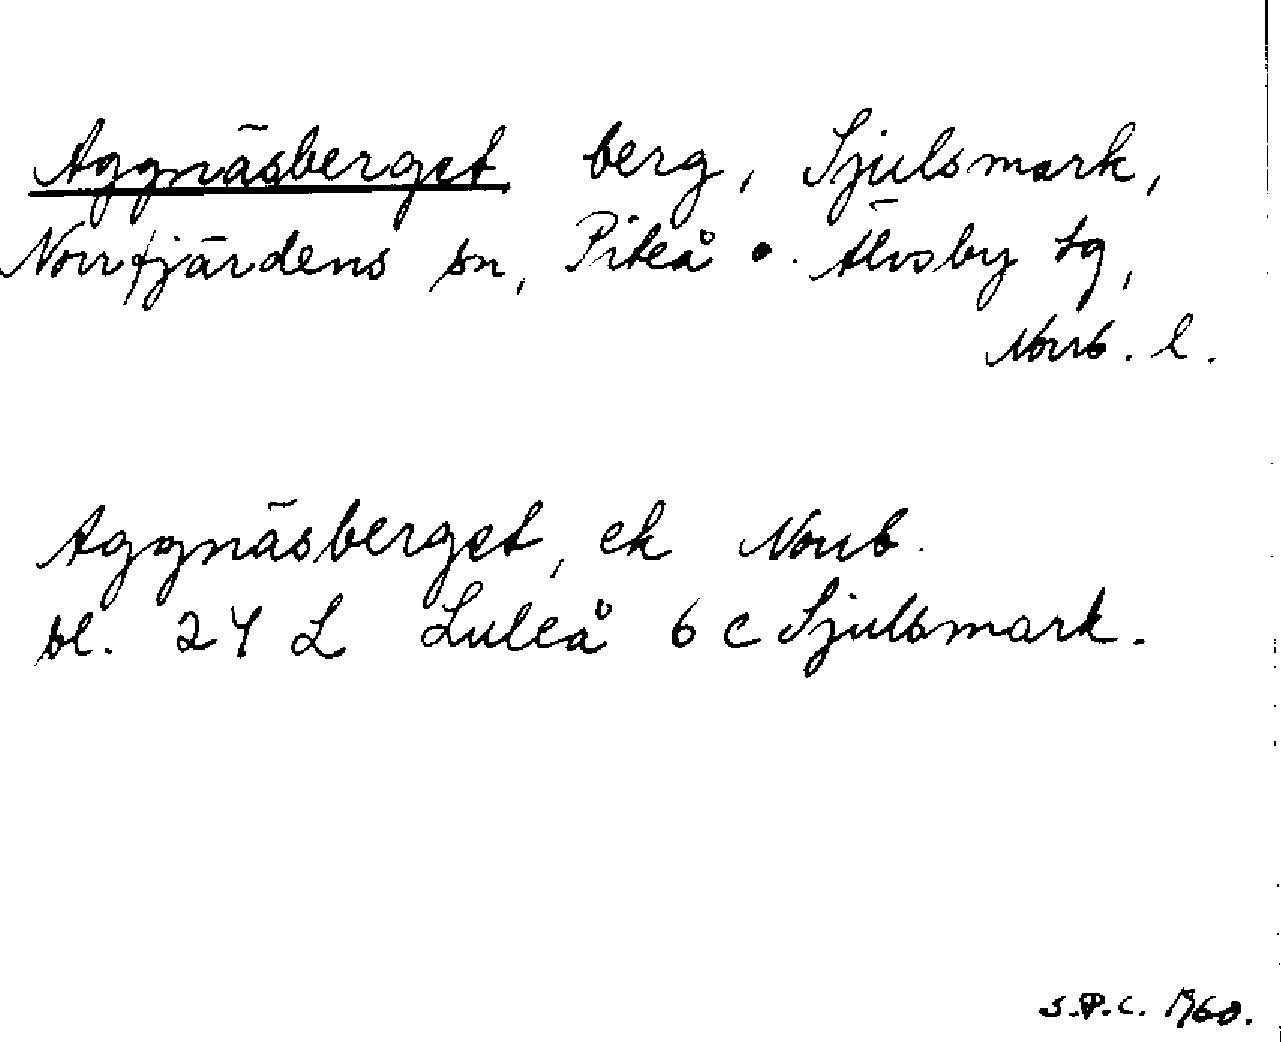 Aggnäsberget berg, Sjulsmark,
Norrfjärdens sn, Piteå o. Älvsby tg,
Norrb. l.
Aggnäsberget, ek Norrb.
bl. 24 L Luleå 6 c Sjulsmark.
S.P.C. 1960.